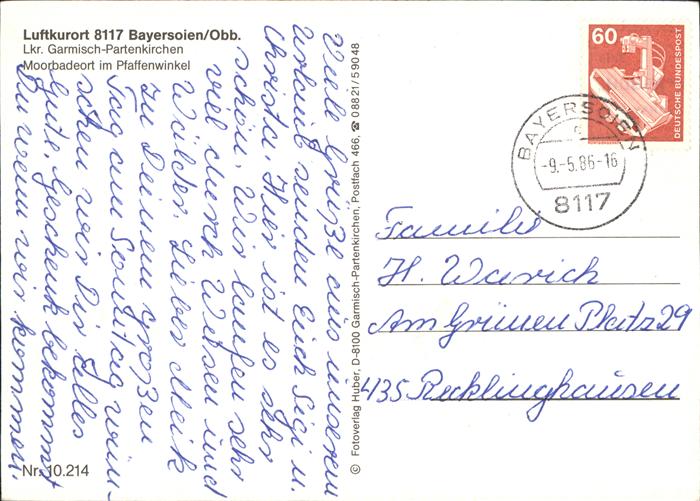 Luftkurort 8117 Bayersoien/Obb.
Lkr. Garmisch-Partenkirchen
Moorbadeort im Pfaffenwinkel
Viele Grüße aus unserem
Urlaub senden Euch Sigi u.
Christa. Hier ist es sehr
schön. Wir laufen sehr
viel durch Wiesen und
Wälder. Lieber Meik
zu Deinem großen
Tag am Sonntag wün-
schen wir Dir Alles
Gute. Geschenk bekommst
Du wenn wir kommen.
Nr. 10.214
© Fotoverlag Huber, D-8100 Garmisch-Partenkirchen, Postfach 466, ☎ 08821/59048
60
DEUTSCHE BUNDESPOST
BAYERSOIEN
-9.-5.86-16
8117
Familie
H. Warich
Am Grünen Platz 29
435 Recklinghausen